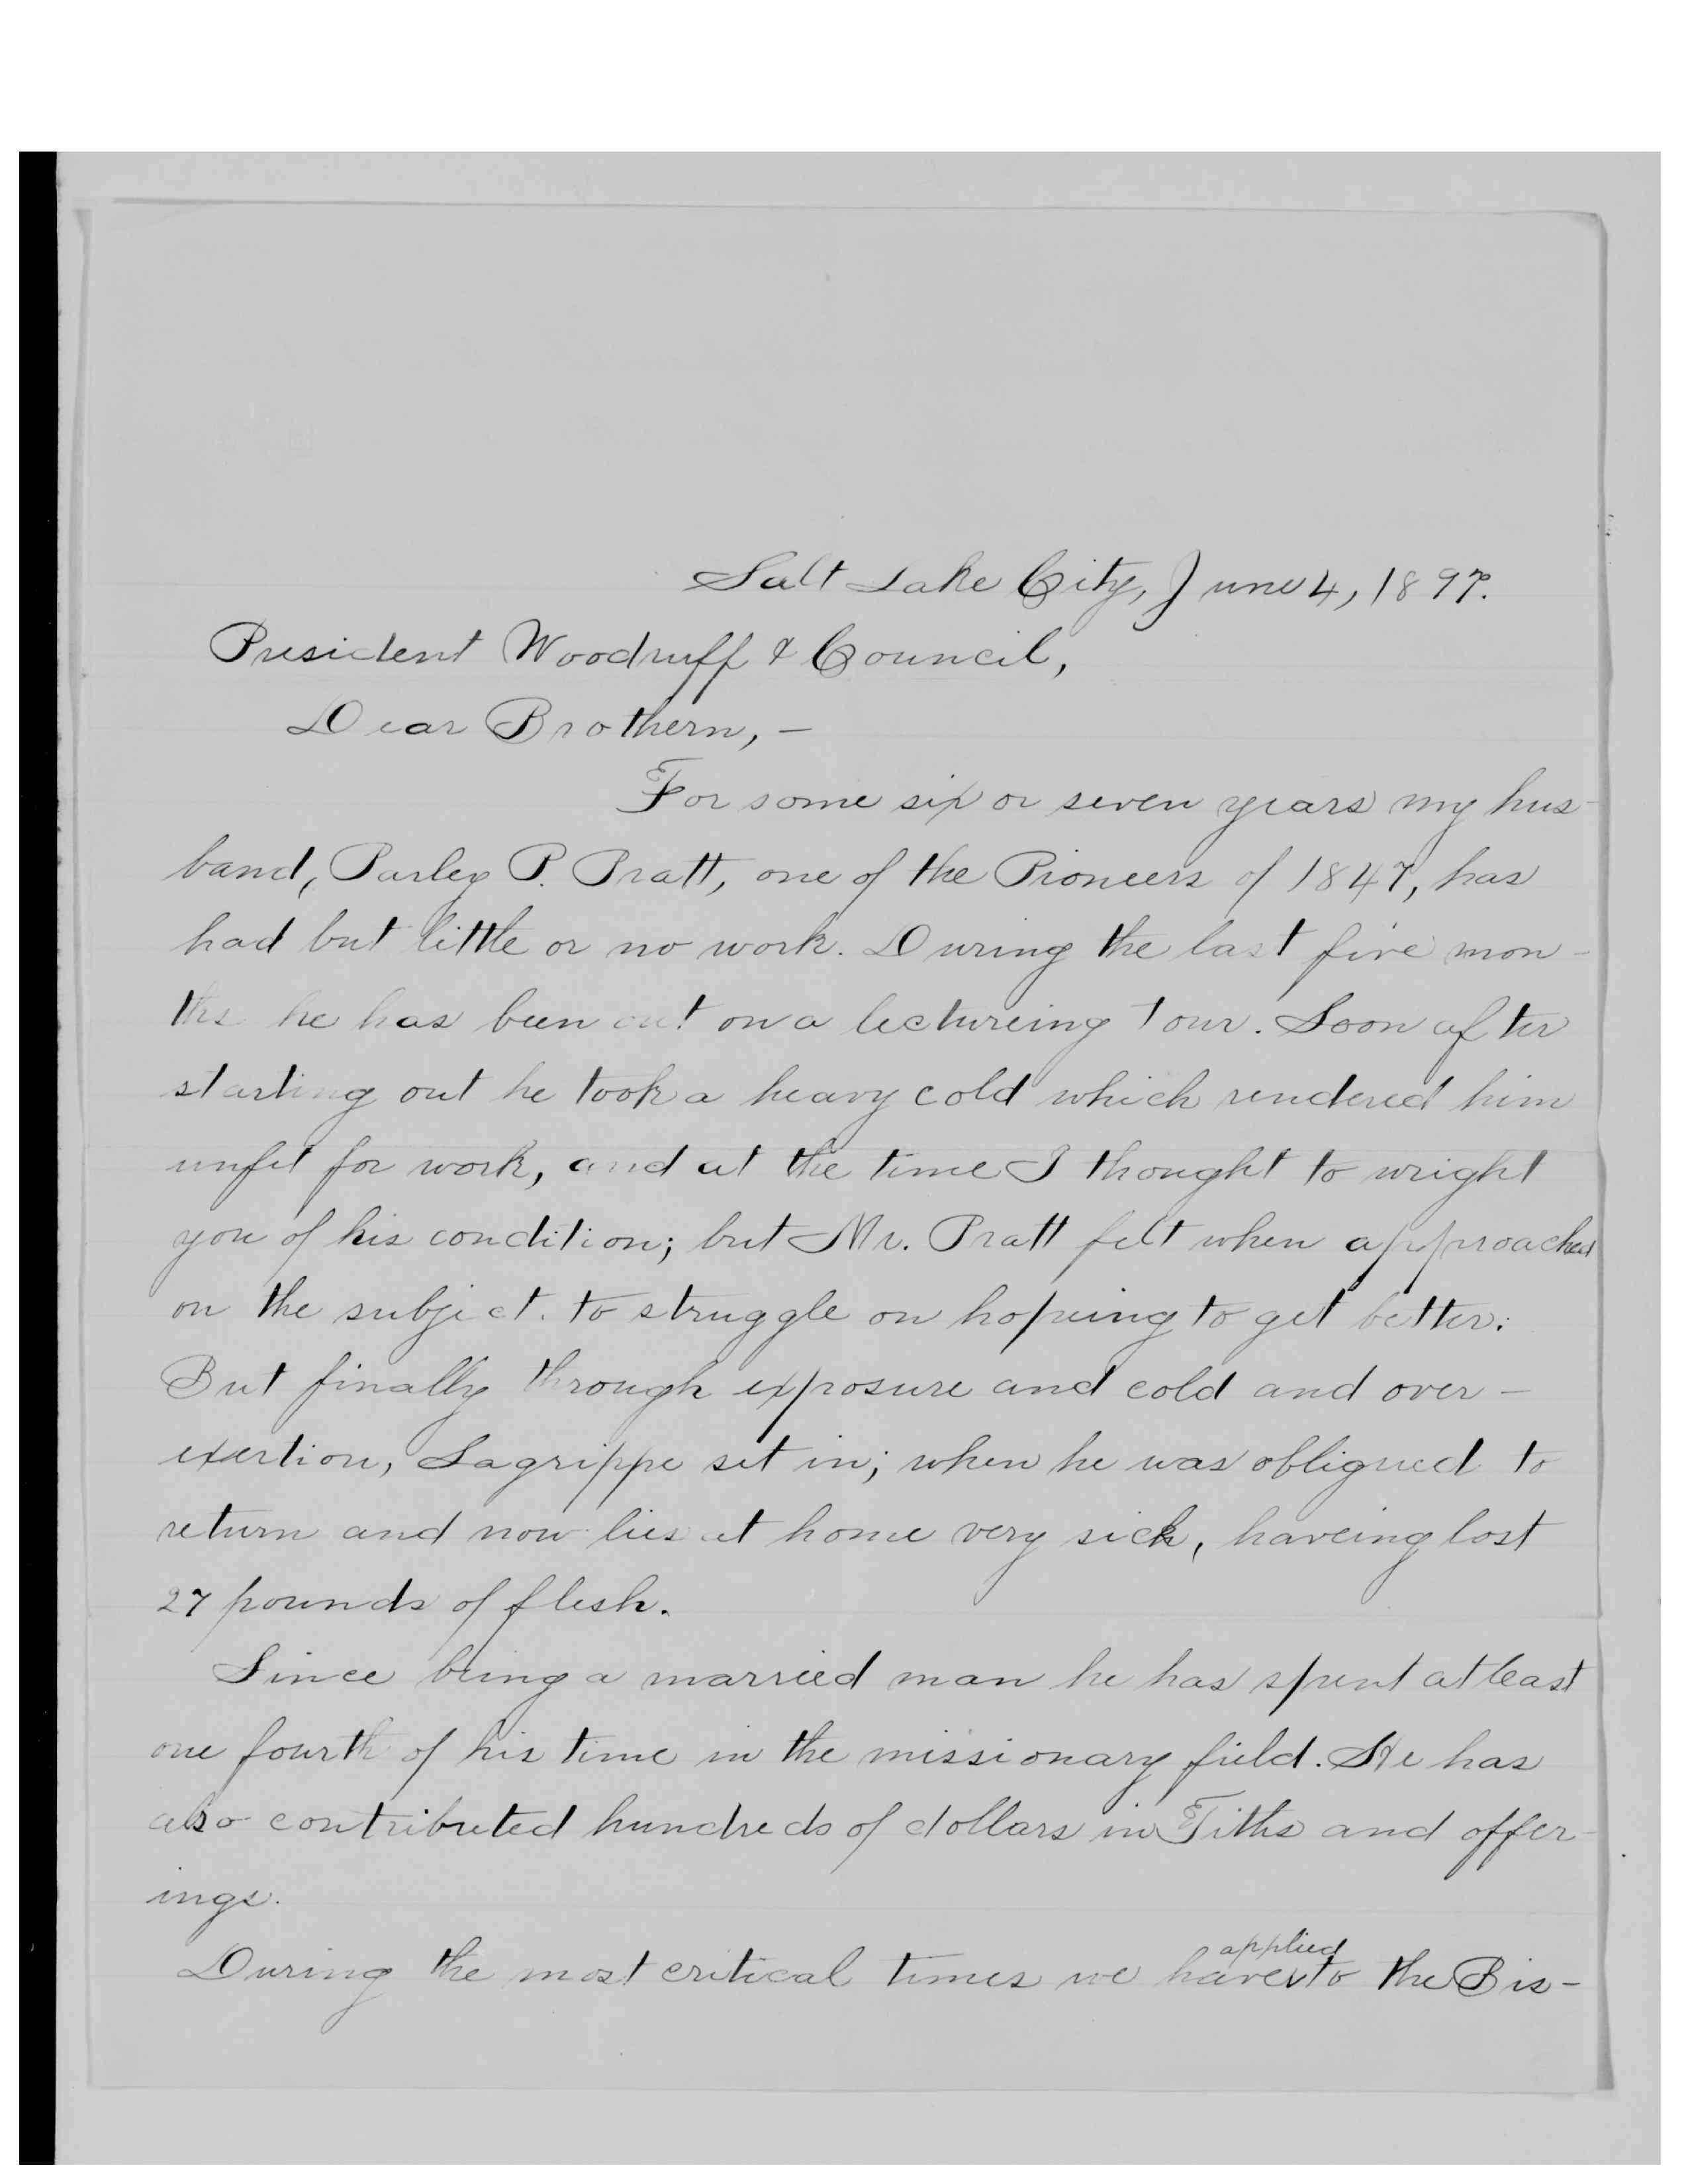 Salt Lake City, June 4, 1897.
President Woodruff & Council,
Dear Brothern, —
For some six or seven years my hus-
band, Parley P. Pratt, one of the Pioneers of 1847, has
had but little or no work. During the last five mon-
ths he has been out on a lectureing tour. Soon after
starting out he took a heavy cold which rendered him
unfit for work, and at the time I thought to wright
you of his condition; but Mr. Pratt felt when approached
on the subject. to struggle on hopeing to get better:
But finally through exposure and cold and over-
exertion, Lagrippe set in; when he was obligued to
return and now lies at home very sick, haveing lost
27 pounds of flesh.
Since being a married man he has spent at least
one fourth of his time in the missionary field. He has
also contributed hundreds of dollars in Tiths and offer-
ings.
applied
During the most critical times we have to the Bis-